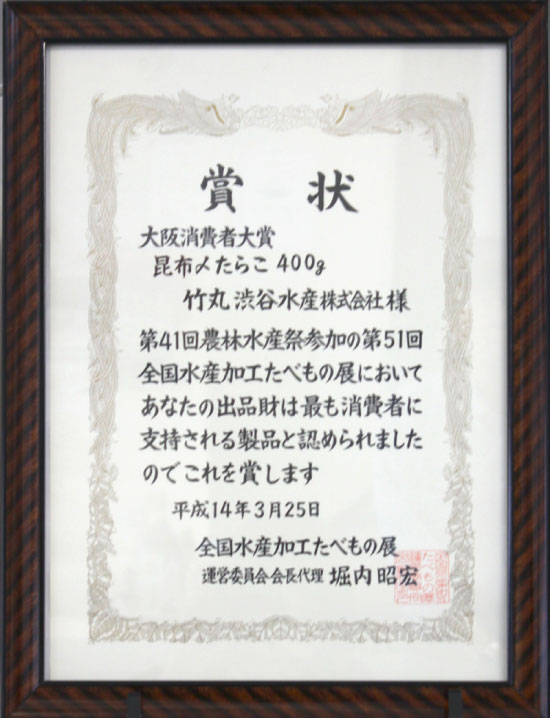 賞状
大阪消費者大賞
昆布〆たらこ 400g
竹丸 渋谷水産株式会社 様
第41回農林水産祭参加の第51回
全国水産加工たべもの展において
あなたの出品財は最も消費者に
支持される製品と認められました
のでこれを賞します
平成14年3月25日
全国水産加工たべもの展
運営委員会会長代理 堀内昭宏